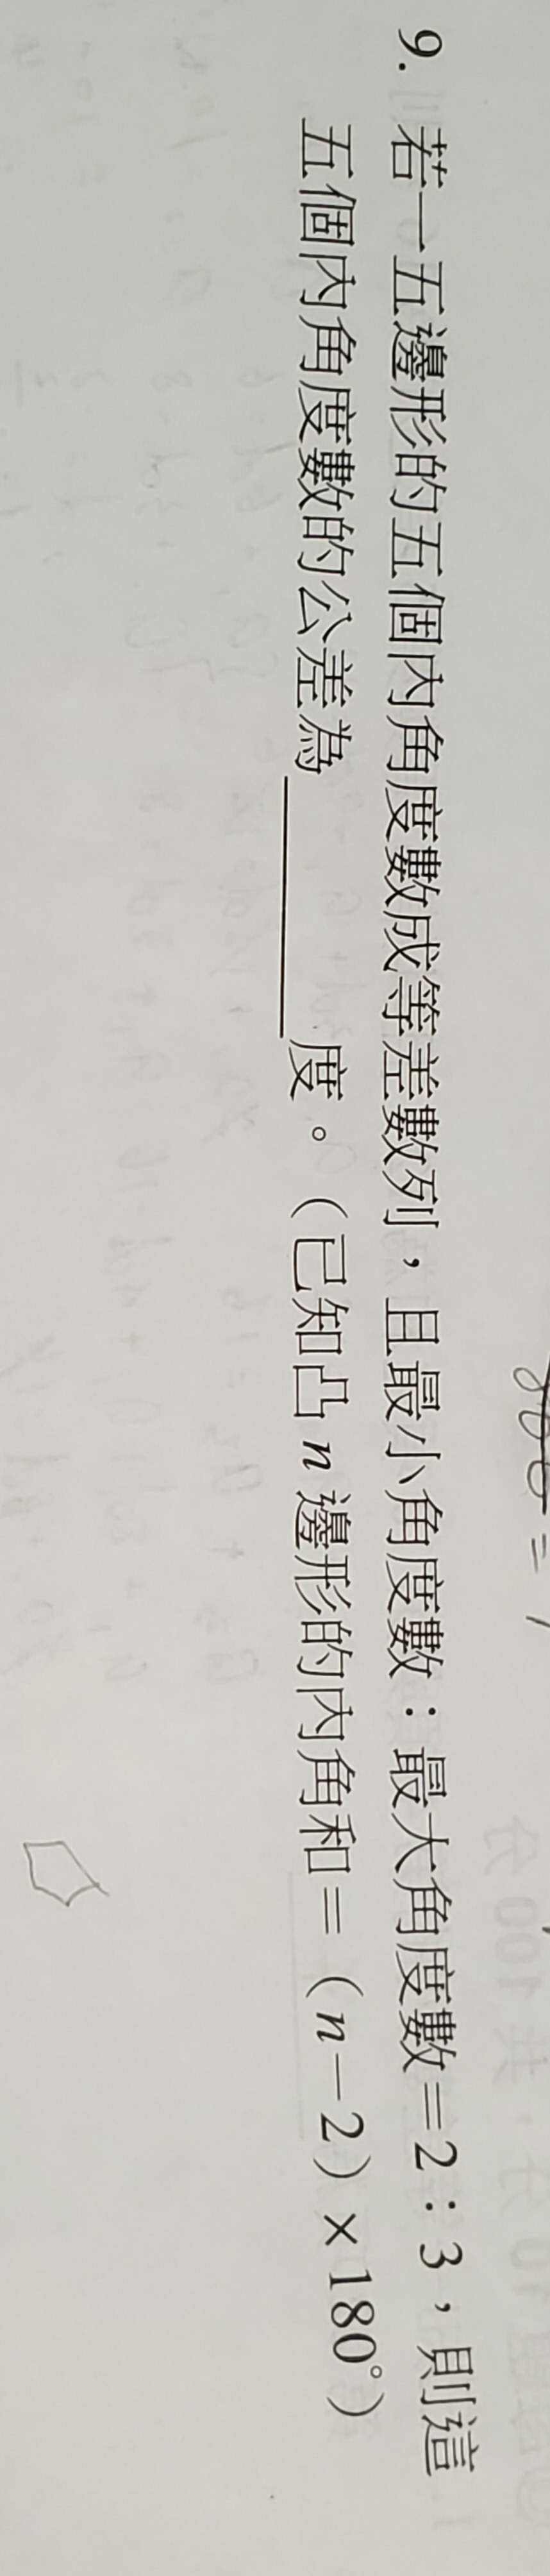 9. 若一五邊形的五個內角度數成等差數列，且最小角度數：最大角度數＝2：3，則這
五個內角度數的公差為＿＿＿＿度。（已知凸 n 邊形的內角和＝（n－2）×180°）